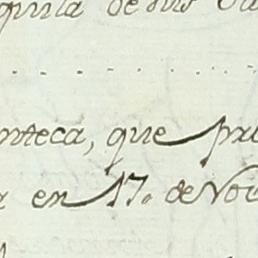 quila de sus
nteca, que pri
en 17. de Nov